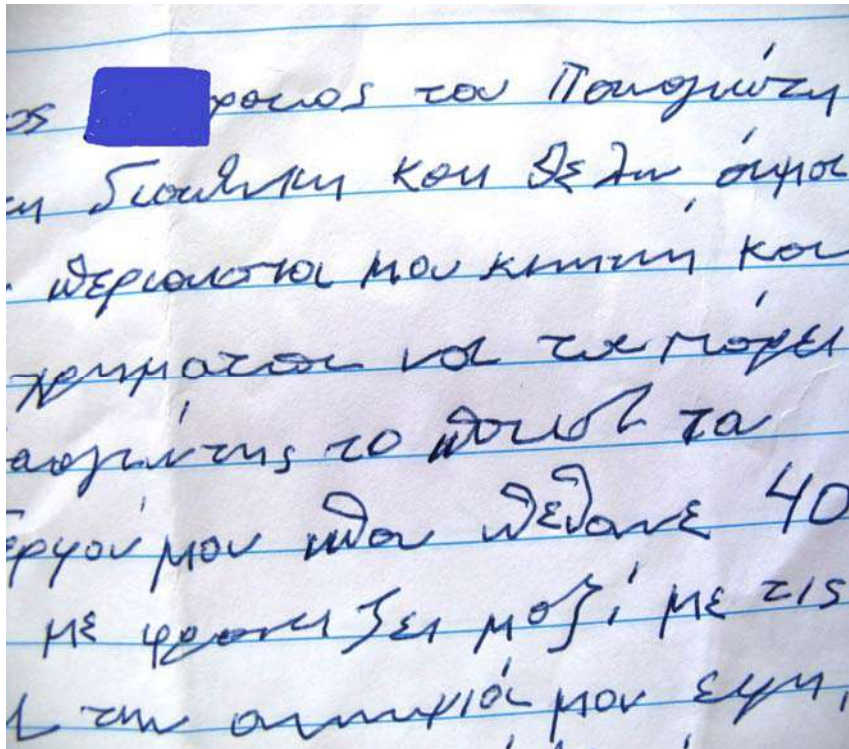 ος ρατος του Παναγιώτη
τη διαθήκη και θελω άμα
περιουσια μου κινητή και
χρηματα να τα πάρει
αγιώτης το παιδί τα
εργού μου που πεθανε 40
με φροντιζει μαζί με τις
την ανηψιά μου